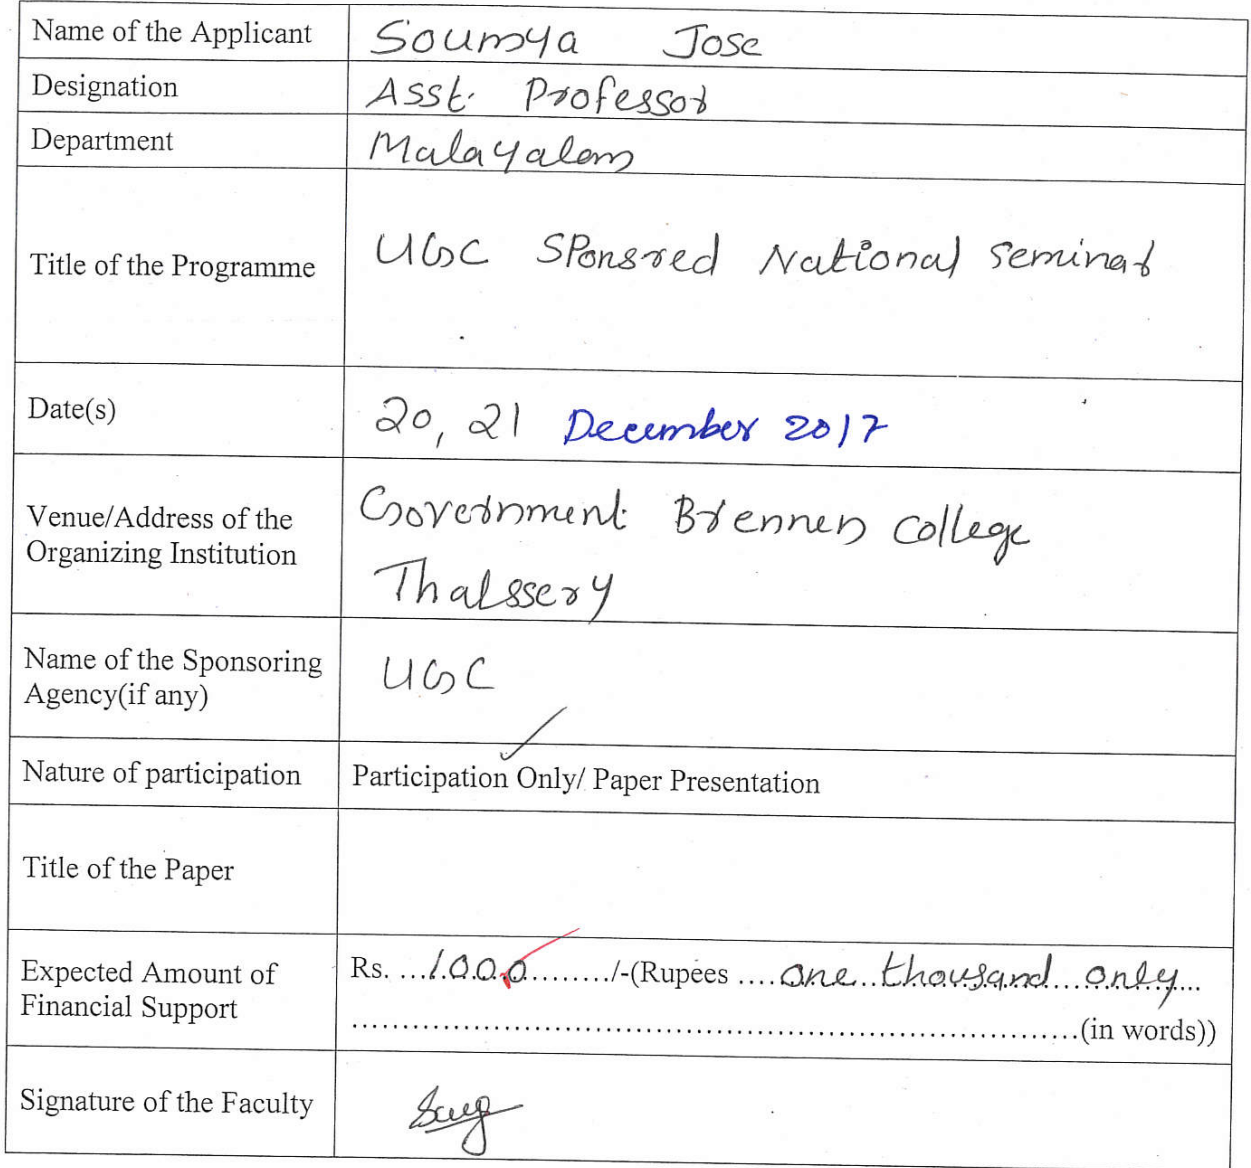 Name of the Applicant Soumya Jose
Designation Asst. Professor
Department Malayalam
Title of the Programme UGC SPonsred National Seminar
Date(s) 20, 21 December 2017
Venue/Address of the
Organizing Institution
Government Brennen College
Thalssery
Name of the Sponsoring
Agency(if any)
UGC
Nature of participation Participation Only/ Paper Presentation
Title of the Paper
Expected Amount of
Financial Support
Rs. ...1000........./-(Rupees ....one thousand only...
....................................................................(in words))
Signature of the Faculty